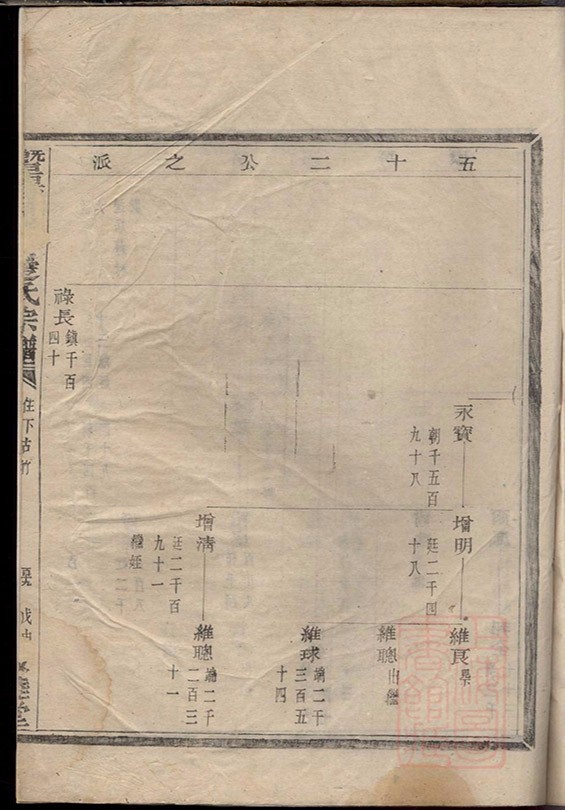 五十二公之派
永寶
朝千五百
九十八
增明
廷二千四
十八
維良
維聰出繼
維球
端二千
三百五
十四
增清
廷二千百
九十一
繼姪
維聰
端二千
二百三
十一
祿長
鎮千百
四十
暨
氏宗譜